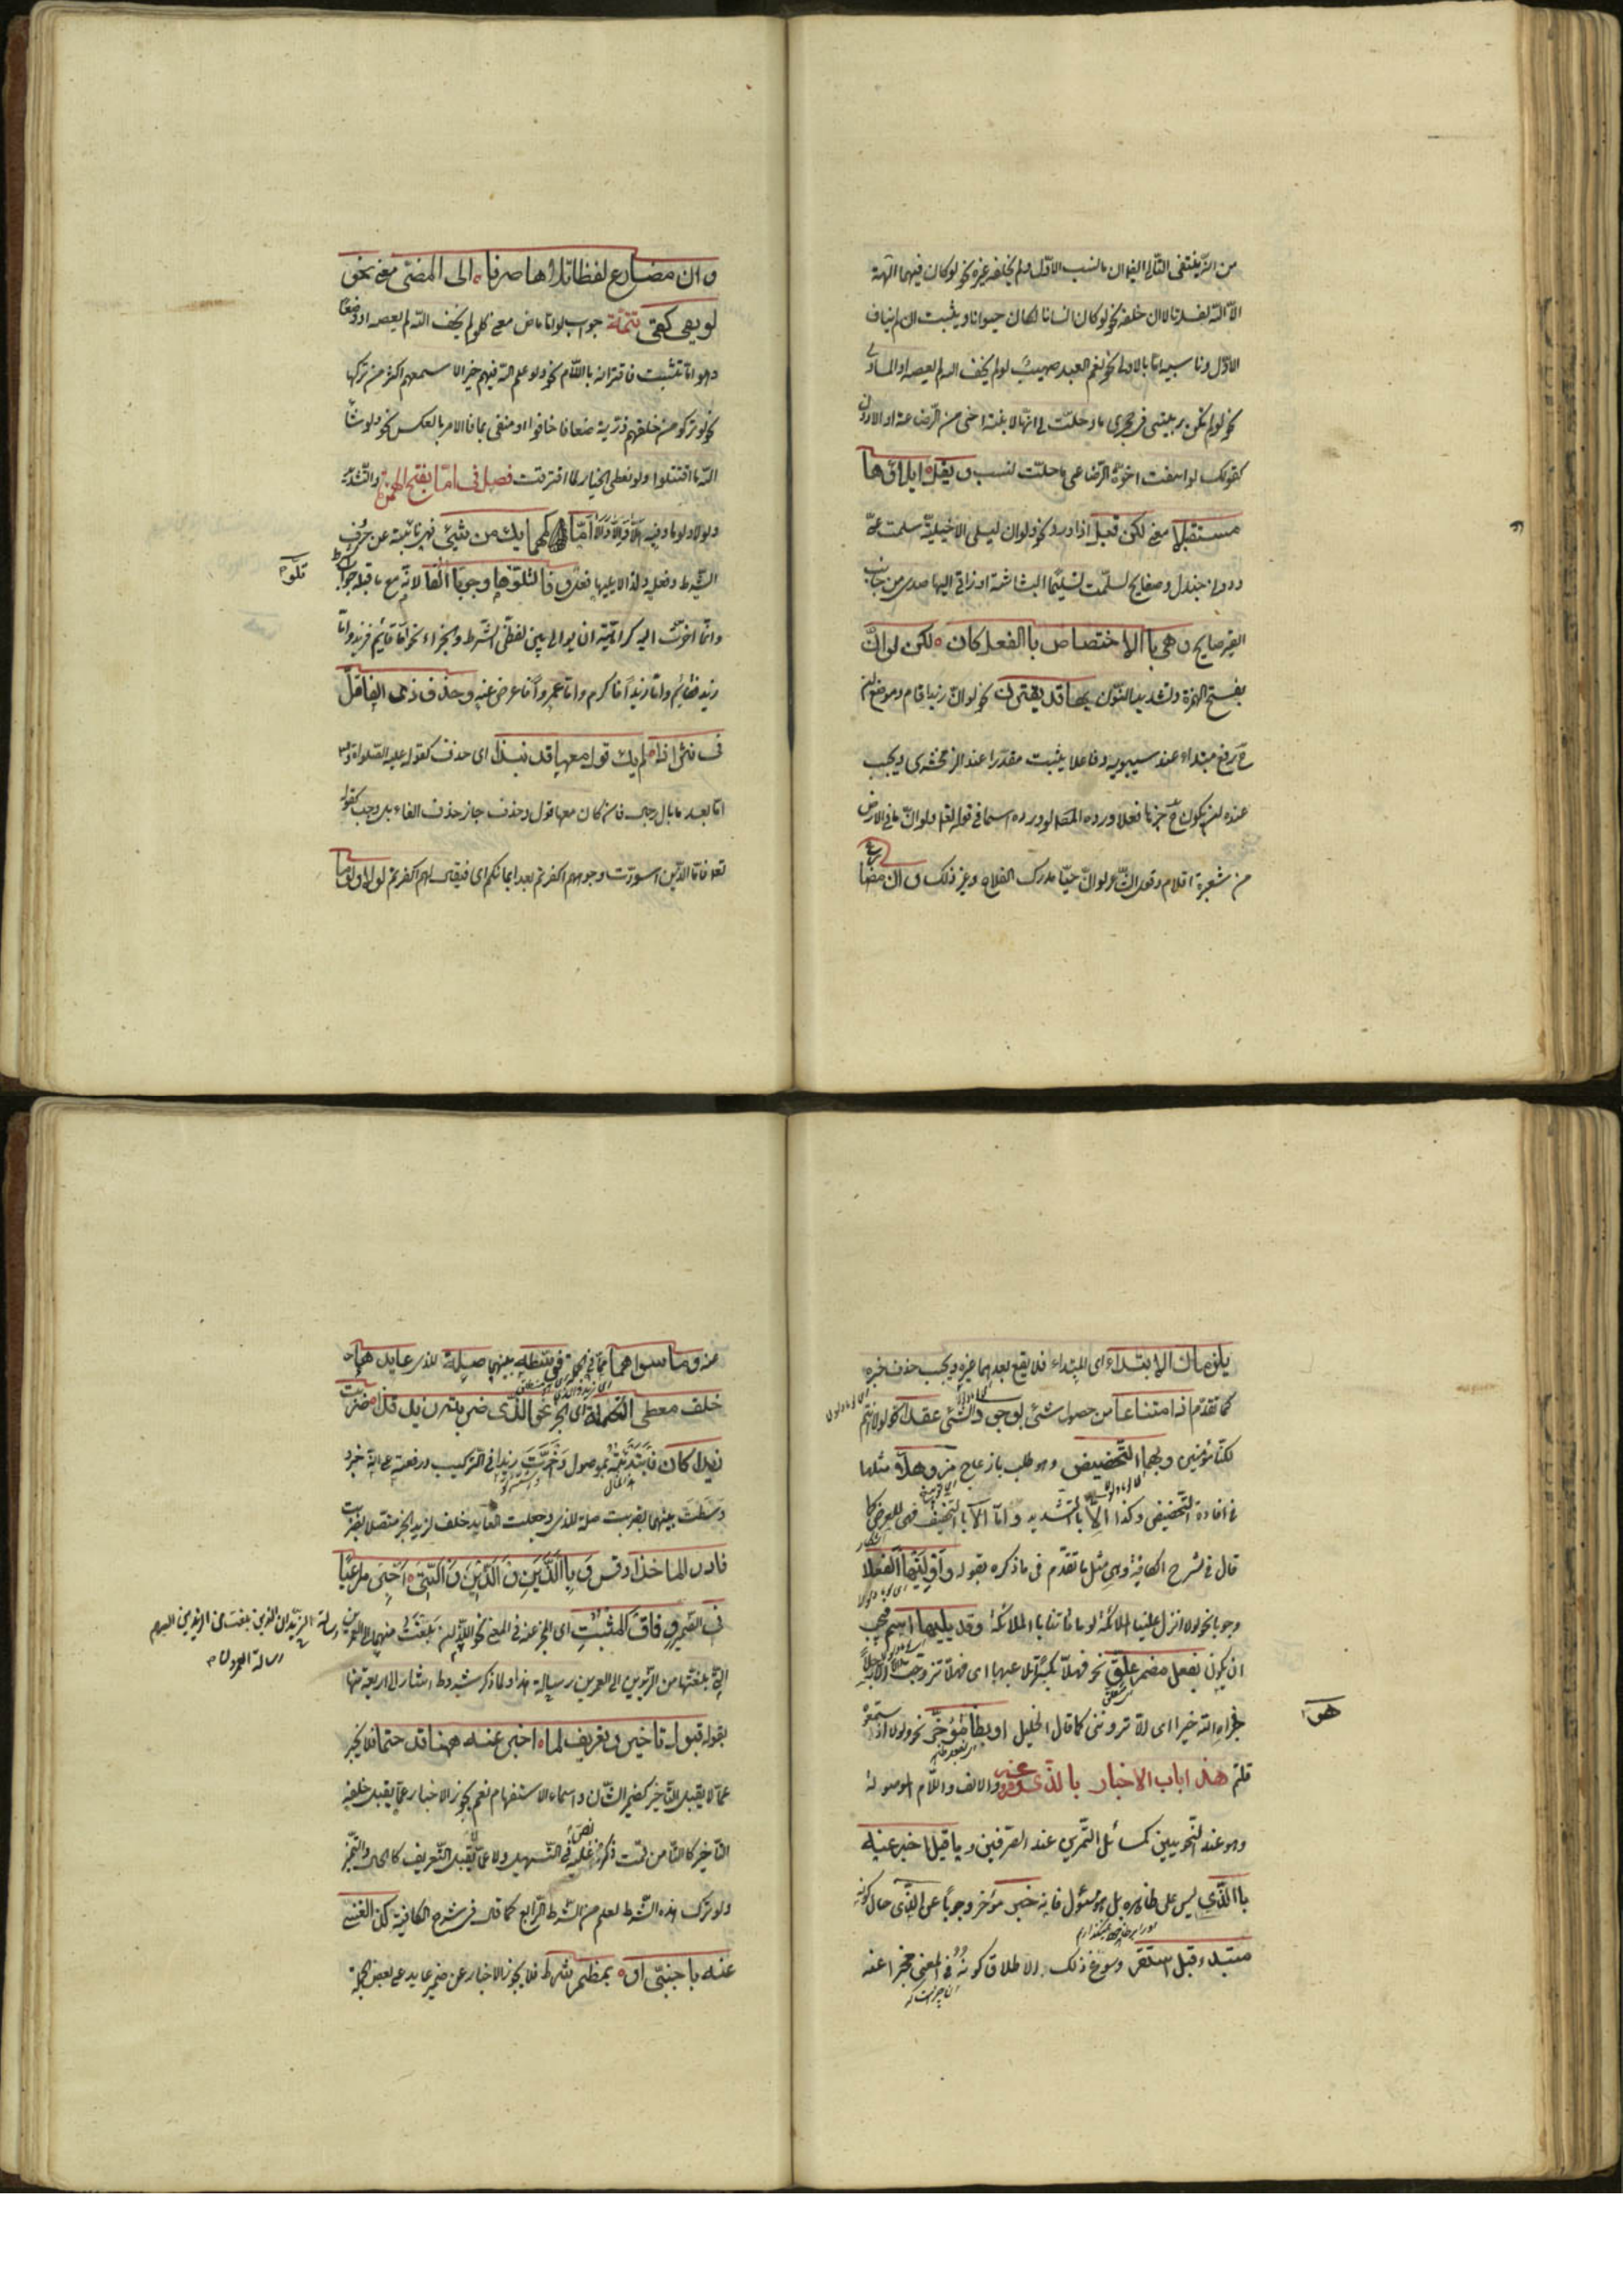 من انّه ينتفى التالى ايضا ان ناسب الاوّل ولم يخلفه غيره نحو لو كان فيهما آلهة
الّا اللّه لفسدتا لا ان خلفه نحو لو كان انسانا لكان حيوانا ويثبت ان لم يناف
الاوّل وناسبه امّا بالاولى نحو نعم العبد صهيب لو لم يخف اللّه لم يعصه او المساوى
نحو لو لم تكن ربيبتى فى حجرى ما حلّت لى انّها لابنة اخى من الرّضاعة او الادون
كقولك لو انتفت اخوّة الرّضاع ما حلّت لنسب و يقل ايلاؤها
مستقبلا معنى لكن قبل اذا ورد نحو ولو ان ليلى الاخيليّة سلمت علىّ
ودونى جندل وصفايح لسلّمت تسليم البشاشة او زقا اليها صدى من جانب
القبر صايح وهى باالاختصاص باالفعل كان لكن لو انّ
بفتح الهمزة وتشديد النّون بها قد يقترن نحو لو انّ زيدا قام وموضع ان
ح رفع مبتداء عند سيبويه وفاعلا بثبت مقدّرا عند الزمخشرى ويجب
عنده ان يكون ح خبرها فعلا ورده المصّ لوروده اسما فى قوله تعالى ولو انّ ما فى الارض
من شجرة اقلام وقول الشّاعر لو انّ حيّا مدرك الفلاح وغير ذلك و ان مضا
رع
وان مضارع لفظا تلاها صرفا الى المضىّ معنى نحو
لو يفى كفى تتمّة جواب لو امّا ماض معنى نحو لو لم يخف اللّه لم يعصه او وضعا
وهو امّا مثبت فاقترانه باللّام نحو ولو علم اللّه فيهم خيرا لاسمعهم اكثر من تركها
نحو لو تركوا من خلفهم ذريّة ضعافا خافوا او منفى بما فالامر بالعكس نحو ولو شاء
اللّه ما اقتتلوا ولو نعطى الخيار لما افترقنا فصل فى امّا بفتح الهمزة والتّشديد
ولولا ولوما وفيه هلّا والّا والا امّا كمهما يك من شيئ فهى نائبة عن حرف
الشّرط وفعله ولذا لا يليها فعل و فا لتلو تلوها وجوبا الفا لانّه مع ما قبله جواب الشّرط
تلو
وانّما اخّرت اليه كراهية ان يوالى بين لفظى الشّرط والجزاء نحو امّا قائم فزيد وامّا
زيد فقائم وامّا زيدا فاكرم وامّا عمروا فاعرض عنه و حذف ذى الفا قلّ
فى نثر اذا لم يك قول معها قد نبذا اى حذف كقوله عليه الصّلوة والسّلام
امّا بعد ما بال رجال فان كان معها قول وحذف جاز حذف الفاء بل وجب كقوله
تعالى فامّا الّذين اسودّت وجوههم اكفرتم بعد ايمانكم اى فيقال لهم اكفرتم لولا ولوما
يلزمان الابتداء اى المبتداء فلا يقع بعدهما غيره ويجب حذف خبره
كما تقدّم اذا امتناعا من حصول شئ لوجود الشّئ عقدا نحو لولا انتم
لكنّا مؤمنين وبهما التّحضيض وهو طلب بازعاج مز وهلّا مثلهما
فى افادة التّحضيض وكذا الّا باالتّشديد وامّا الا باالتّخفيف فهى للعرض كما
قال فى شرح الكافية وهى مثل ما تقدّم فى ما ذكره بقوله واولينها الفعلا
وجوبا نحو لولا انزل علينا الملائكة لوما تاتينا باالملائكة وقد يليها اسم فيجب
ان يكون بفعل مضمر علّق نحو فهلّا بكرا تلاعبها اى فهلّا تزوّجت الا رجلا
جزاه اللّه خيرا اى الا تروننى كما قال الخليل او بظاهر مؤخّر نحو ولولا اذ سمعتموه
هو
قلتم هذا باب الاخبار باالّذى وفروعه والالف واللّام الموصولة
وهو عند النّحويين كمسائل التّمرين عند الصّرفيين وما قيل اخبر عنه
باالّذى ليس على ظاهره بل مؤوّل فانه خبر مؤخّر وجوبا عن الّذى حال كونه
مبتدء قبل استقرّ وسوّغ ذلك الاطلاق كونه فى المعنى مخبرا عنه
عنه وما سواهما ممّا فى الجملة فوسّطه بينهما صلة للذى عايدها
خلف معطى التّكملة اى الخبر نحو الّذى ضربته زيد فذا ضربت
زيدا كان فابتدئته بموصول واخّرت زيدا فى التركيب ورفعته على انّه خبره
ووسّطت بينهما بضربت صلة للذى وجعلت العايد خلف لزيد الخبر متصلا بضربت
فادر الماخذا وقس و باالّذين و الّذين و الّتى اخبر مراعيا
فى الضّمير وفاق المثبت اى المخبر عنه فى المعنى نحو اللّذان بلّغت منهما الى العمرين
رسالة الزّيدان الّذين بلّغت من الزيدين الى العمرين رسالة العمرون
الّتى بلّغتها من الزّيدين الى العمرين رسالة هذا ولما ذكر شروط اشار الى اربعة منها
بقوله قبول تاخير وتعريف لما اخبر عنه ههنا قد حتما فلا يخبر
عمّا لا يقبل التّاخير كضمير الشّان واسماء الاستفهام نعم يجوز الاخبار عمّا يقبل خلفه
التّاخير كالتّاء من قمت ذكره فى التّسهيل ولا عمّا لا يقبل التّعريف كالحال والتّميز
ولو ترك هذه الشّرط لعلم من الشّرط الرّابع كما قال فى شرح الكافية كذا الغنى
عنه باجنبىّ او بمضمر شرط فلا يجوز الاخبار عن ضمير عايد على بعض الجملة